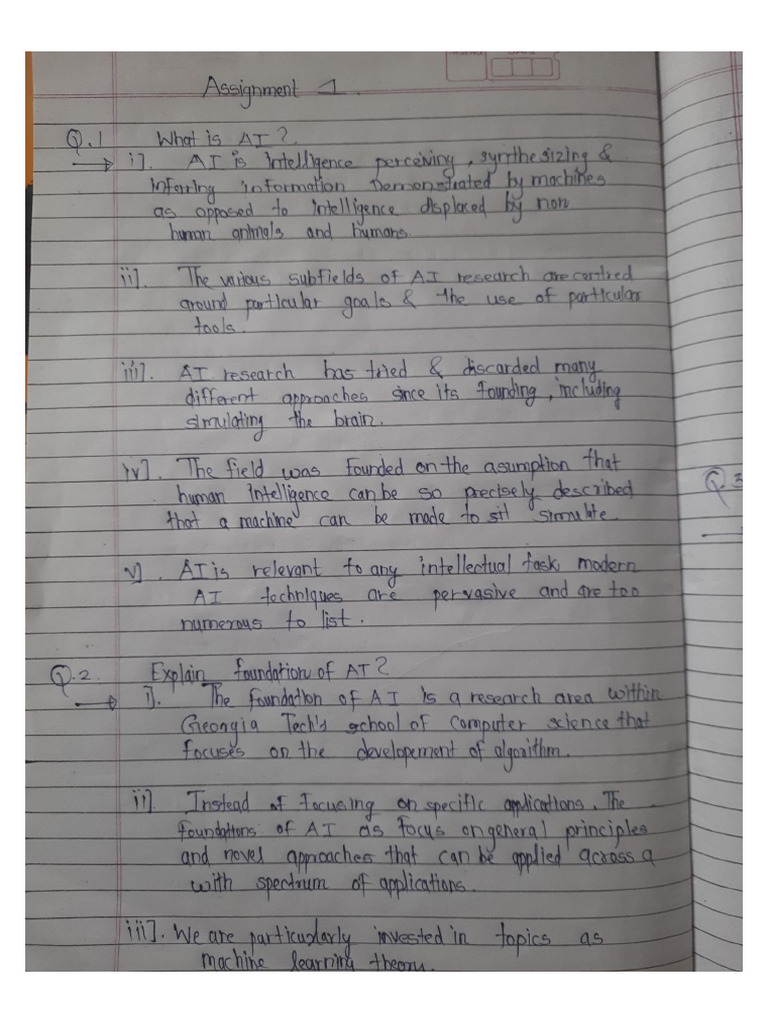 Assignment 1.
Q.1 What is AI?
i]. AI is intelligence perceiving, synthesizing &
inferring information Demonstrated by machines
as opposed to intelligence displaced by non
human animals and humans.
ii]. The various subfields of AI research are centred
around particular goals & the use of particular
tools.
iii]. AI research has tried & discarded many
different approaches since its founding, including
simulating the brain.
iv]. The field was founded on the asumption that
human intelligence can be so precisely described
that a machine can be made to sit simulate.
v]. AI is relevant to any intellectual task modern
AI techniques are pervasive and are too
numerous to list.
Q.2. Explain foundation of AI?
i]. The foundation of AI is a research area within
Geongia Tech's school of computer science that
focuses on the developement of algorithm.
ii]. Instead of focusing on specific applications. The
foundations of AI as focus on general principles
and novel approaches that can be applied across a
with spectrum of applications.
iii]. We are particularly invested in topics as
machine learning theory.
Q.3